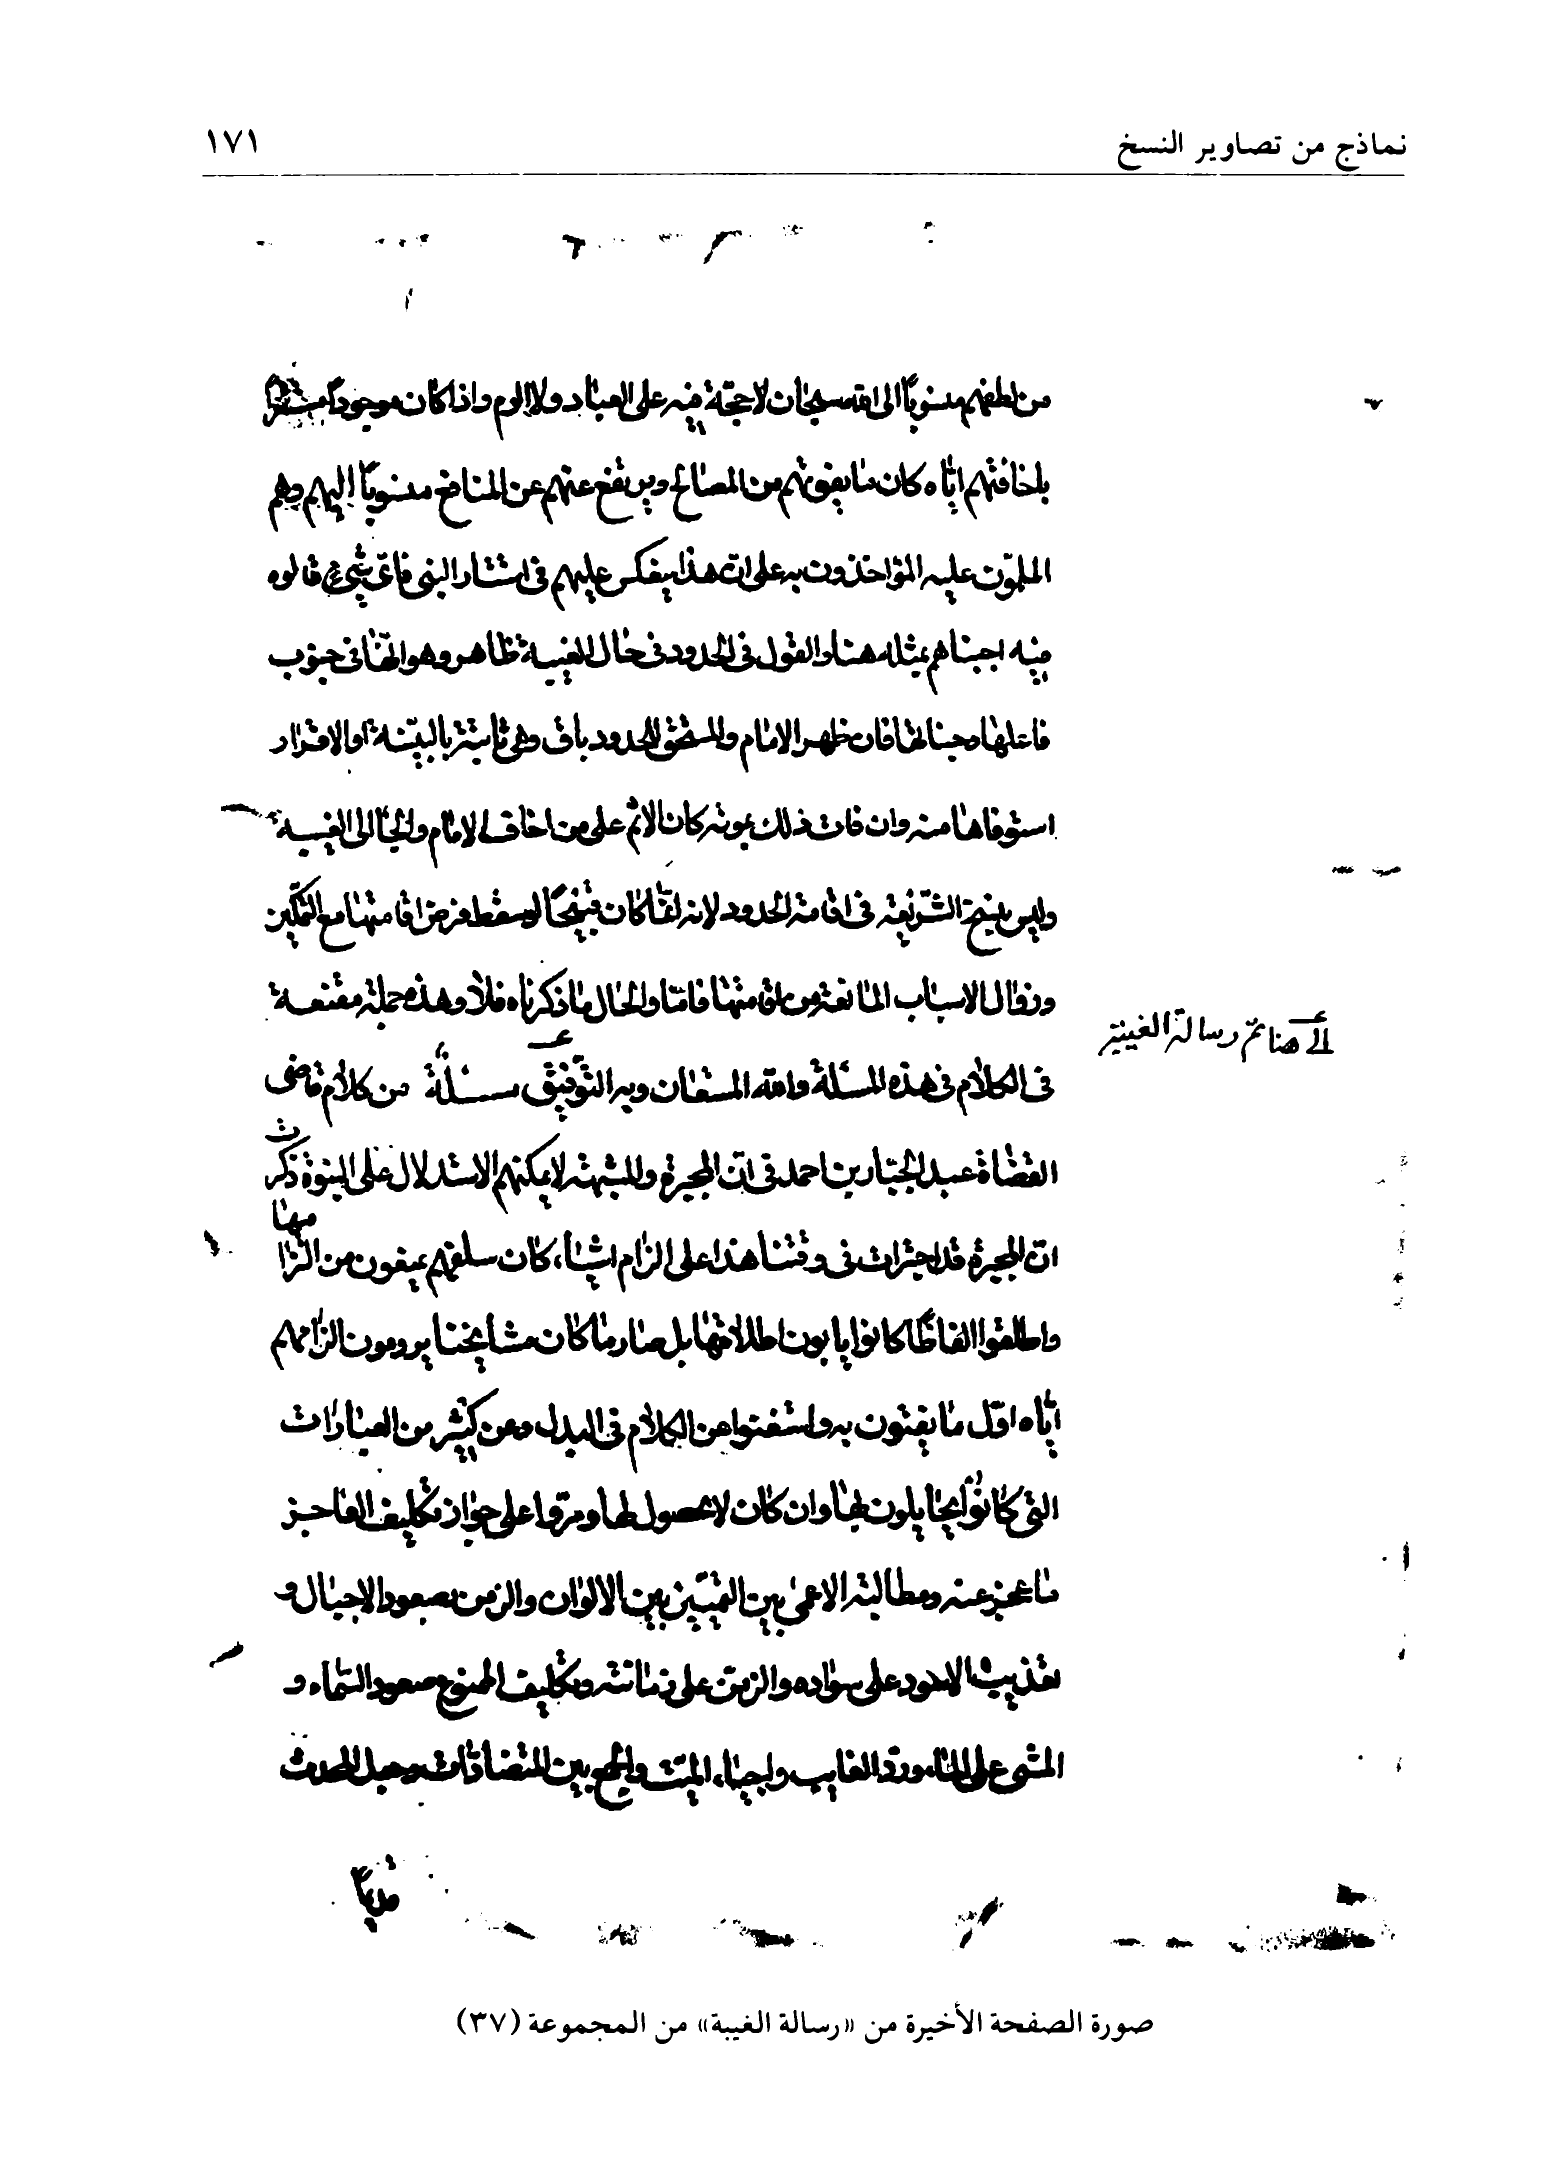 نماذج من تصاوير النسخ
١٧١
من لطفهم منسوباً الى الله سبحانه لا حجّة فيه على العباد ولا لوم واذا كان موجوداً مستتراً
باخافتهم ايّاه كان ما يفوتهم من المصالح ويرتفع عنهم من المنافع منسوباً اليهم وهم
الملومون عليه المؤاخذون به على ان هذا ينعكس عليهم فى استتار النبى فاى شىء قالوه
فيه اجبناهم بمثله هنا والقول فى الحدود فى حال الغيبة ظاهر وهو انها فى جنوب
فاعلها وجناتها فان ظهر الامام والمستحق للحدود باق وهى ثابتة بالبيّنة او الاقرار
استوفاها منه وان فات ذلك بموته كان الاثم على من اخاف الامام والجأه الى الغيبة
وليس بنسخ الشّريعة فى اقامة الحدود لانه انما كان نسخاً لو سقط فرض اقامتها مع التمكين
وزوال الاسباب المانعة من اقامتها فامّا والحال ما ذكرناه فلا وهذه جملة مقنعة
الى هنا تمّ رسالة الغيبة
فى الكلام فى هذه المسئلة والله المستعان وبه التّوفيق مسئلة من كلام قاضى
القضاة عبد الجبّار بن احمد فى انّ المجبرة والمشبهة لا يمكنهم الاستدلال على النبوة ذكر
انّ المجبرة قد اجترات فى وقتنا هذا على الزام اشياء كان سلفهم يمنعون من التزامها
واطلقوا الفاظاً كانوا يابون اطلاقها بل صار ما كان مشايخنا يرومون الزامهم
ايّاه اوّل ما يفتون به واستغنوا عن الكلام فى البدل وعن كثير من العبارات
التى كانوا يحايلون بها وان كان لا محصول لها ومرّوا على جواز تكليف العاجز
ما عجز عنه ومطالبة الاعمى بين التمييز بين الالوان والزمن بصعود الاجبال و
تعذيب الاسود على سواده والزمن على زمانته وتكليف الممنوع صعود السّماء و
المشى على الماء وردّ الغايب واحياء الميّت والجمع بين المتضادّات وجعل المحدث
قديماً
صورة الصفحة الأخيرة من «رسالة الغيبة» من المجموعة (٣٧)